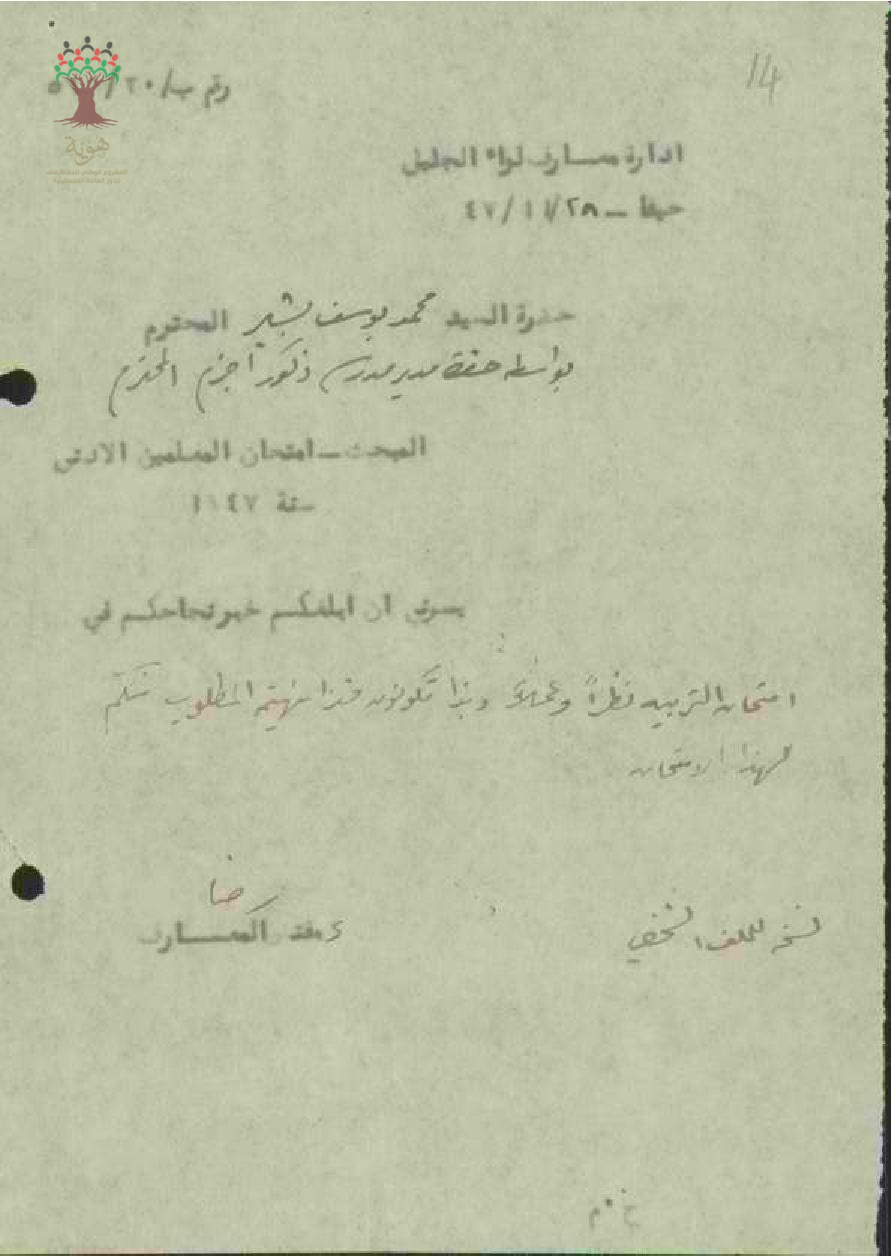 14
رقم ب/٢٠/
هوية
ادارة معارف لواء الجليل
حيفا – ٤٧/١١/٢٨
حضرة السيد محمد يوسف بشير المحترم
بواسطة حضرة مدير مدرسة ذكور اجزم المحترم
المبحث – امتحان المعلمين الادنى
سنة ١٩٤٧
يسرني ان ابلغكم خبر نجاحكم في
امتحان التربيه نظراً وعملاً وبذا تكونون قد المطلوب منكم
لهذا الامتحان
مفتش المعارف
نسخه للملف الشخصي
خ٠م